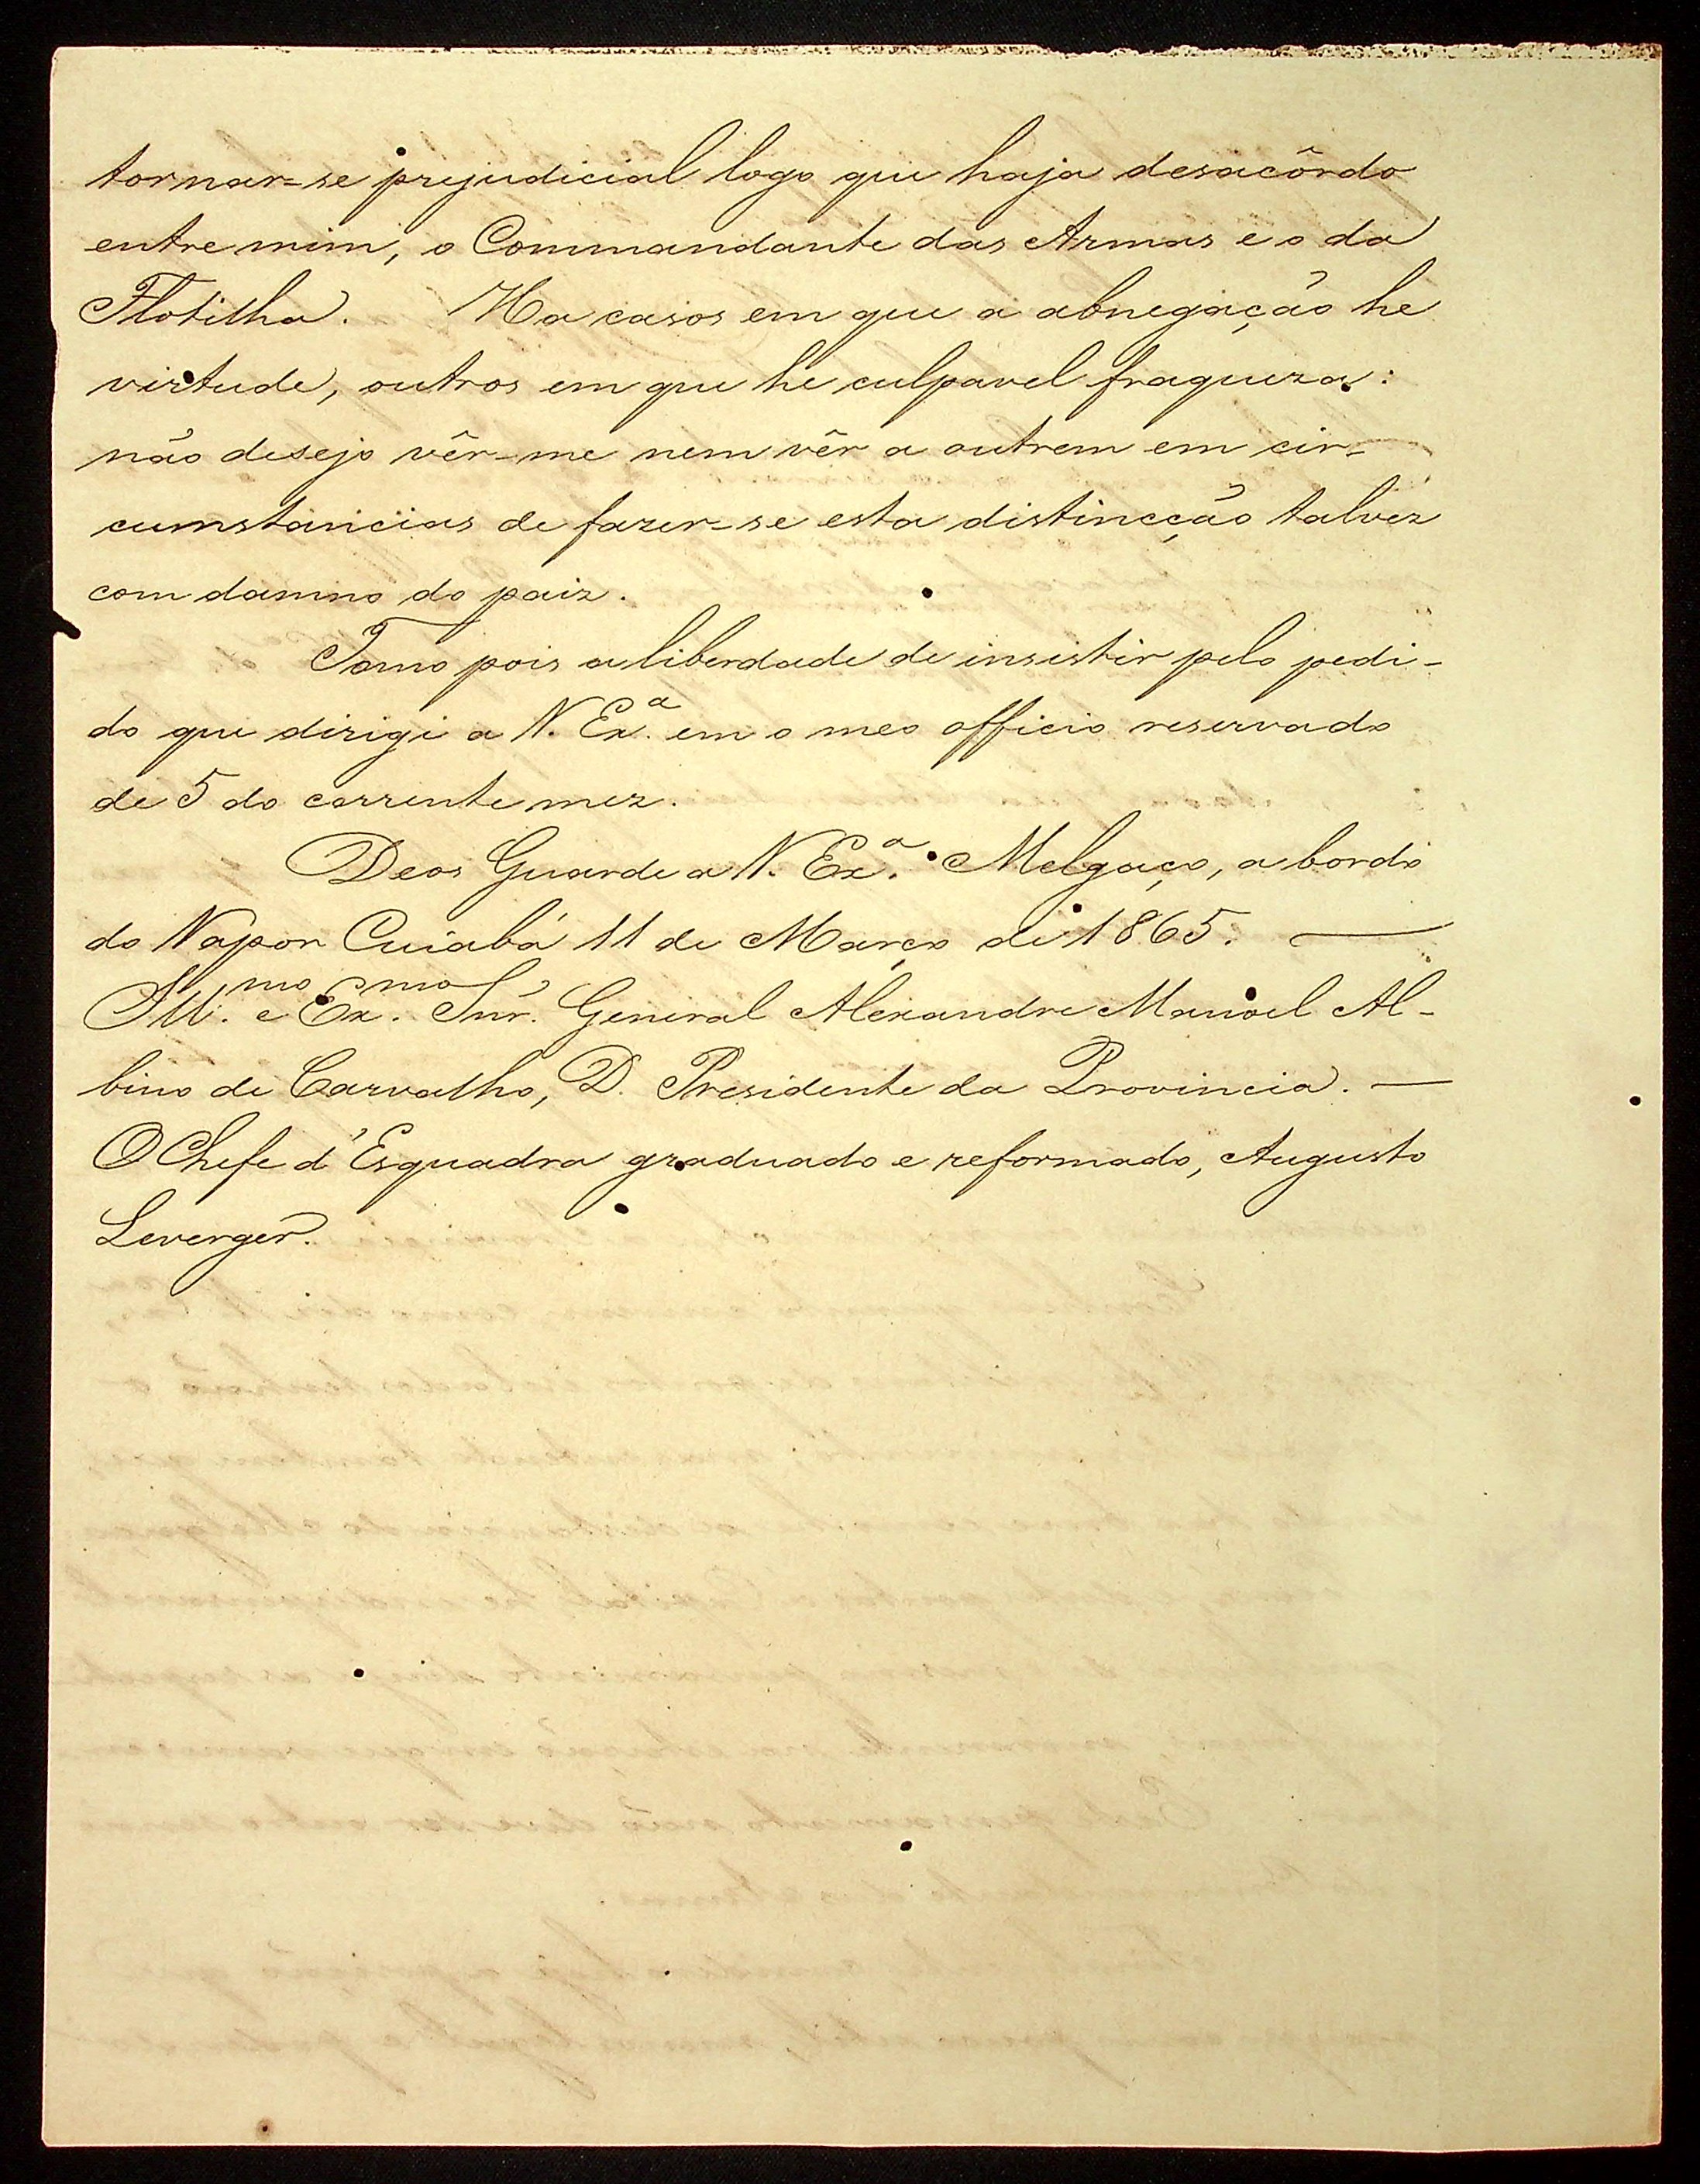 tornar-se prejudicial logo que haja desacôrdo
entre mim, o Commandante das Armas e o da
Flotilha. Ha casos em que a abnegação he
virtude, outros em que he culpavel fraqueza:
não desejo vêr-me nem vêr a outrem em cir-
cumstancias de fazer-se esta distincção talvez
com damno do paiz.
Tomo pois a liberdade de insistir pelo pedi-
do que dirigi a V. Ex.ª em o meo officio reservado
de 5 do corrente mez.
Deos Guarde a V. Ex.ª Melgaço, a bordo
do Vapor Cuiabá 11 de Março de 1865. —
Ill.mo e Ex.mo Snr. General Alexandre Manoel Al-
bino de Carvalho, D. Presidente da Provincia. —
O Chefe d'Esquadra graduado e reformado, Augusto
Leverger.